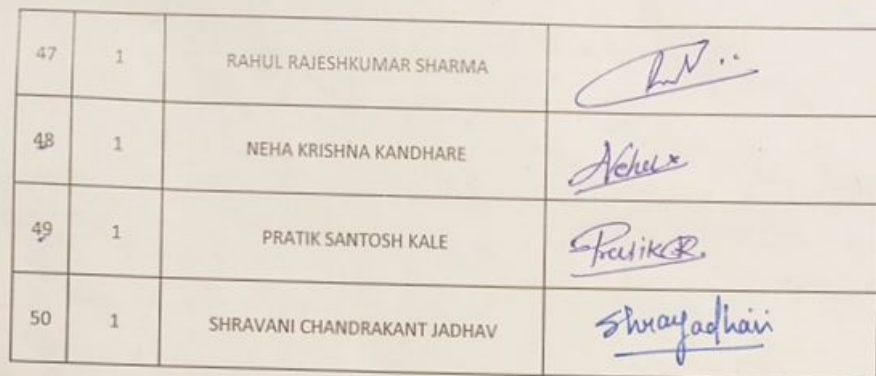 47 1 RAHUL RAJESHKUMAR SHARMA
48 1 NEHA KRISHNA KANDHARE Neha
49 1 PRATIK SANTOSH KALE PratikR.
50 1 SHRAVANI CHANDRAKANT JADHAV